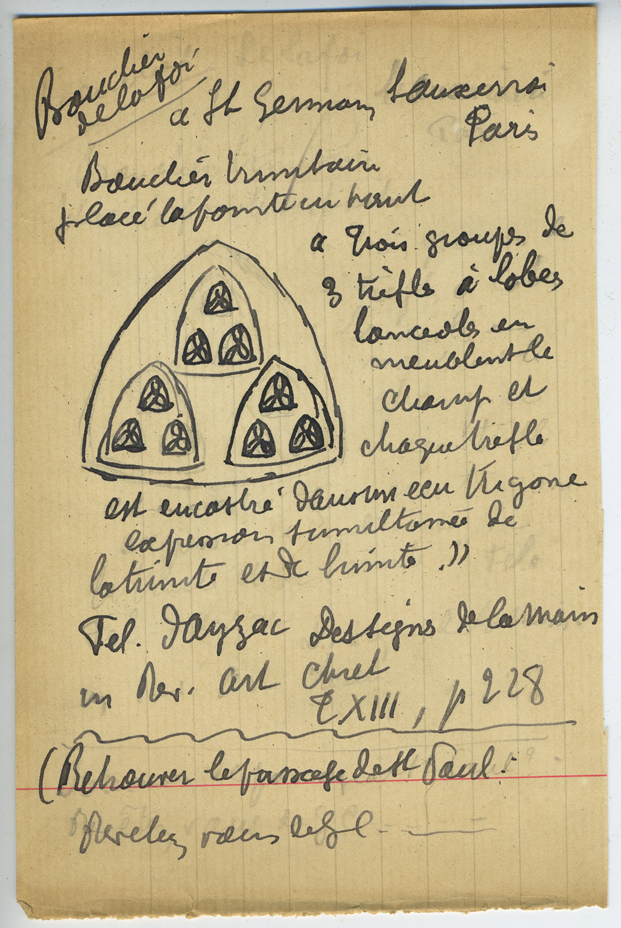 Bouclier
de la foi
a St Germain Lauxerroi
Paris
Bouclier trinitaire
placé la pointe en haut
" Trois groupes de
3 trèfle à lobes
lanceoles en
meublent le
champ et
chaque trèfle
est encastré dans un ecu trigone
expression simultanée de
la trinité et de l'unité . ))
Fel. d'Ayzac Des signes de la main
in Rev. art chret
T XIII , p 228
(Retrouver le passage de St Paul :
Revetez vous de